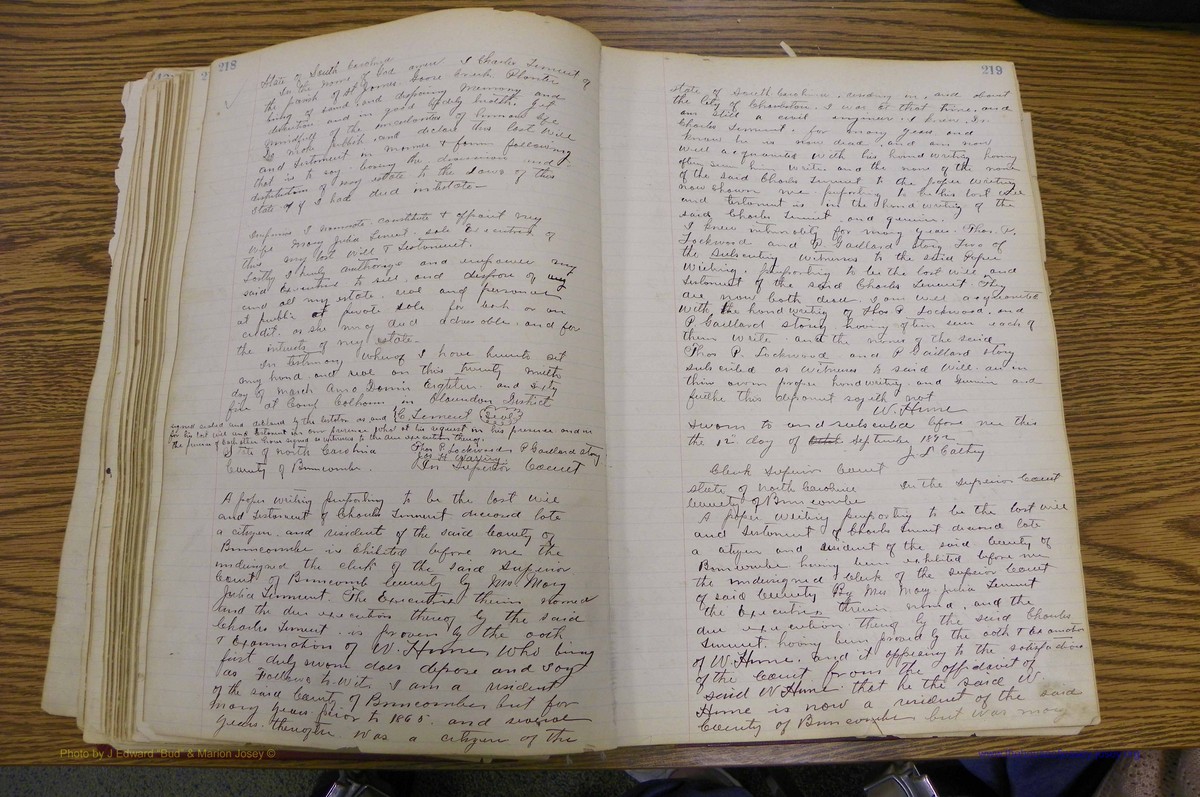 218
State of South Carolina
In the name of God amen I Charles Siment of
the parish of St James Goose Creek Planter
being of sound and disposing memory and
and in good bodily health, yet
mindful of the uncertainties of human life
do make publish and declare this last Will
and Testament in manner & form following
that is to say: leaving the division and
distribution of my estate to the laws of this
State as if I had died intestate—
I nominate, constitute & appoint my
Wife Mary Julia Siment sole Executrix of
this my last Will & Testament.
Lastly I hereby authorize and empower my
said executrix to sell and dispose of any
and all my estate real and personal
at public or private sale for cash or on
credit as she may deem advisable and for
the interests of my estate—
In testimony whereof I have hereunto set
my hand and seal on this twenty
day of March Anno Domini Eighteen and Sixty
five at Camp Calhoun in Clarendon District
signed sealed and declared by the testator as and
for his last will and testament in our presence who at his request in his presence and in
the presence of each other have signed as witnesses to the due execution thereof.
C. Siment (Seal)
Thos P. Lockwood P Gaillard Story
State of North Carolina
County of Buncombe. In Superior Court
A paper writing purporting to be the last will
and Testament of Charles Siment deceased late
a citizen and resident of the said County of
Buncombe is Exhibited before me the
undersigned the clerk of the said Superior
Court of Buncomb County by Mrs Mary
Julia Siment. The Executrix therein named
and the due execution thereof by the said
Charles Siment is proven by the oath
& Examination of W. Hume, Who being
first duly sworn does depose and Say
as Follows to-Wit, I am a resident
of the said County of Buncombe but for
many years prior to 1865 and several
years thereafter was a citizen of the
219
State of South Carolina, residing in and about
the City of Charleston. I was at that time, and
am still a civil engineer. I knew
Charles Siment, for many years and
know he is now dead, and am now
Well acquainted With his hand writing having
often seen him Write and the name of
of the said Charles Siment to the paper Writing
now shown me purporting to be his last will
and testament is in the hand writing of the
said Charles Siment, and genuine.
I knew intimately for many years Thos. P.
Lockwood and P Gaillard Story Two of
the Subscribing Witnesses to the said Paper
Writing, purporting to be the last will and
Testament of the said Charles Siment. They
are now both dead. I am well acquainted
With the hand writing of Thos P Lockwood, and
P. Gaillard Story, having often seen each of
them write and the names of the said
Thos P. Lockwood and P Gaillard Story
subscribed as Witness to said Will are in
their own proper handwriting and Genuine and
further this deponent sayeth not
W. Hume
Sworn to and subscribed before me this
the 12th day of September 1892
J. L. Cathey
Clerk Superior Court
State of North Carolina In the Superior Court
County of Buncombe
A paper writing purporting to be the last will
and Testament of Charles Siment deceased late
a citizen and resident of the said County of
Buncombe having been exhibited before me
the undersigned Clerk of the superior Court
of said County By Mrs Mary Julia Siment
the Executrix therein named, and the
due execution thereof by the said Charles
Siment, having been proved by the oath & Examination
of W. Hume, and it appearing to the satisfaction
of the Court from the affidavit of
said W Hume that he the said W.
Hume is now a resident of the said
County of Buncombe but was many
Photo by J Edward "Bud" & Marion Josey ©